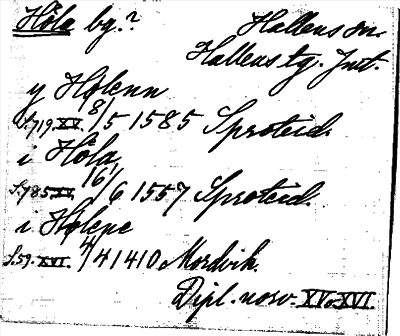 Håla by.? Hallens sn.
Hallens tg. Jmt.
y Holenn
S. 719. XV. 8/5 1585 Sproteid.
i Håla
S. 785 XV. 16/6 1557 Sproteid.
i Holene
S. 59. XVI. 4/4 1410 Mordvik.
Dipl. norv. XV o XVI.